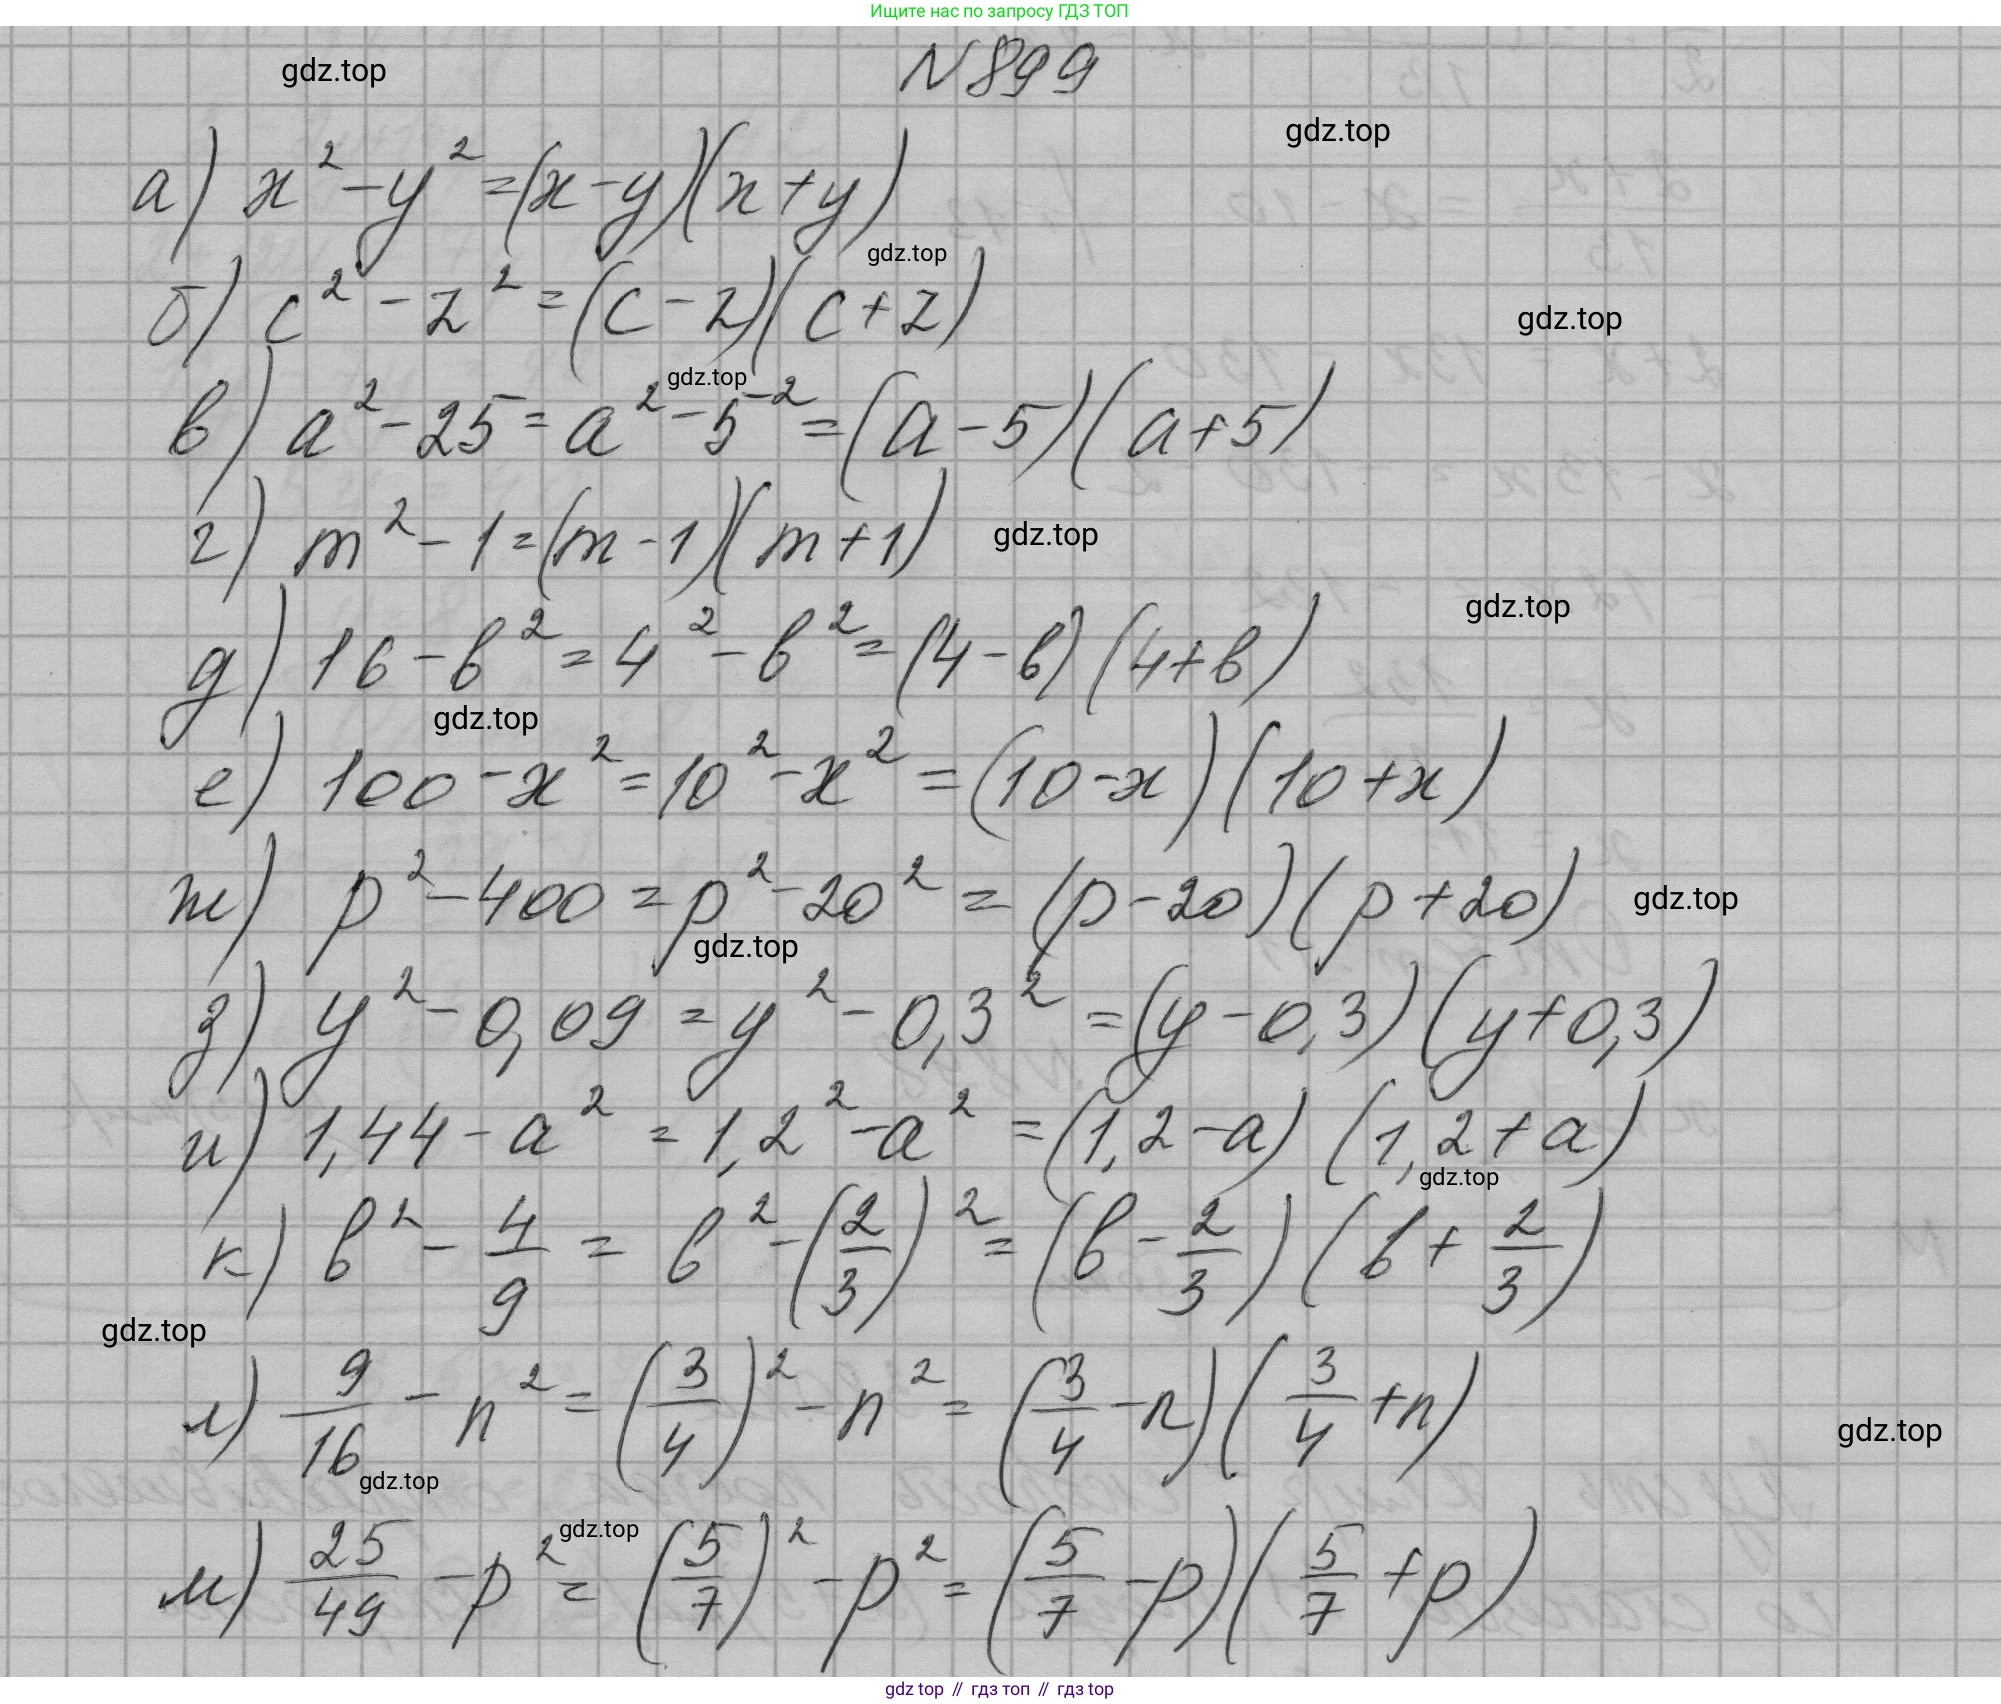 Ищите нас по запросу ГДЗ ТОП
N899
gdz.top
gdz.top
а) x² - y² = (x - y)(x + y)
gdz.top
б) c² - z² = (c - z)(c + z)
gdz.top
gdz.top
в) a² - 25 = a² - 5² = (a - 5)(a + 5)
г) m² - 1 = (m - 1)(m + 1)
gdz.top
gdz.top
д) 16 - b² = 4² - b² = (4 - b)(4 + b)
gdz.top
е) 100 - x² = 10² - x² = (10 - x)(10 + x)
ж) p² - 400 = p² - 20² = (p - 20)(p + 20)
gdz.top
gdz.top
з) y² - 0,09 = y² - 0,3² = (y - 0,3)(y + 0,3)
и) 1,44 - a² = 1,2² - a² = (1,2 - a)(1,2 + a)
gdz.top
к) b² - 4/9 = b² - (2/3)² = (b - 2/3)(b + 2/3)
gdz.top
л) 9/16 - n² = (3/4)² - n² = (3/4 - n)(3/4 + n)
gdz.top
gdz.top
gdz.top
м) 25/49 - p² = (5/7)² - p² = (5/7 - p)(5/7 + p)
gdz top // гдз топ // гдз top